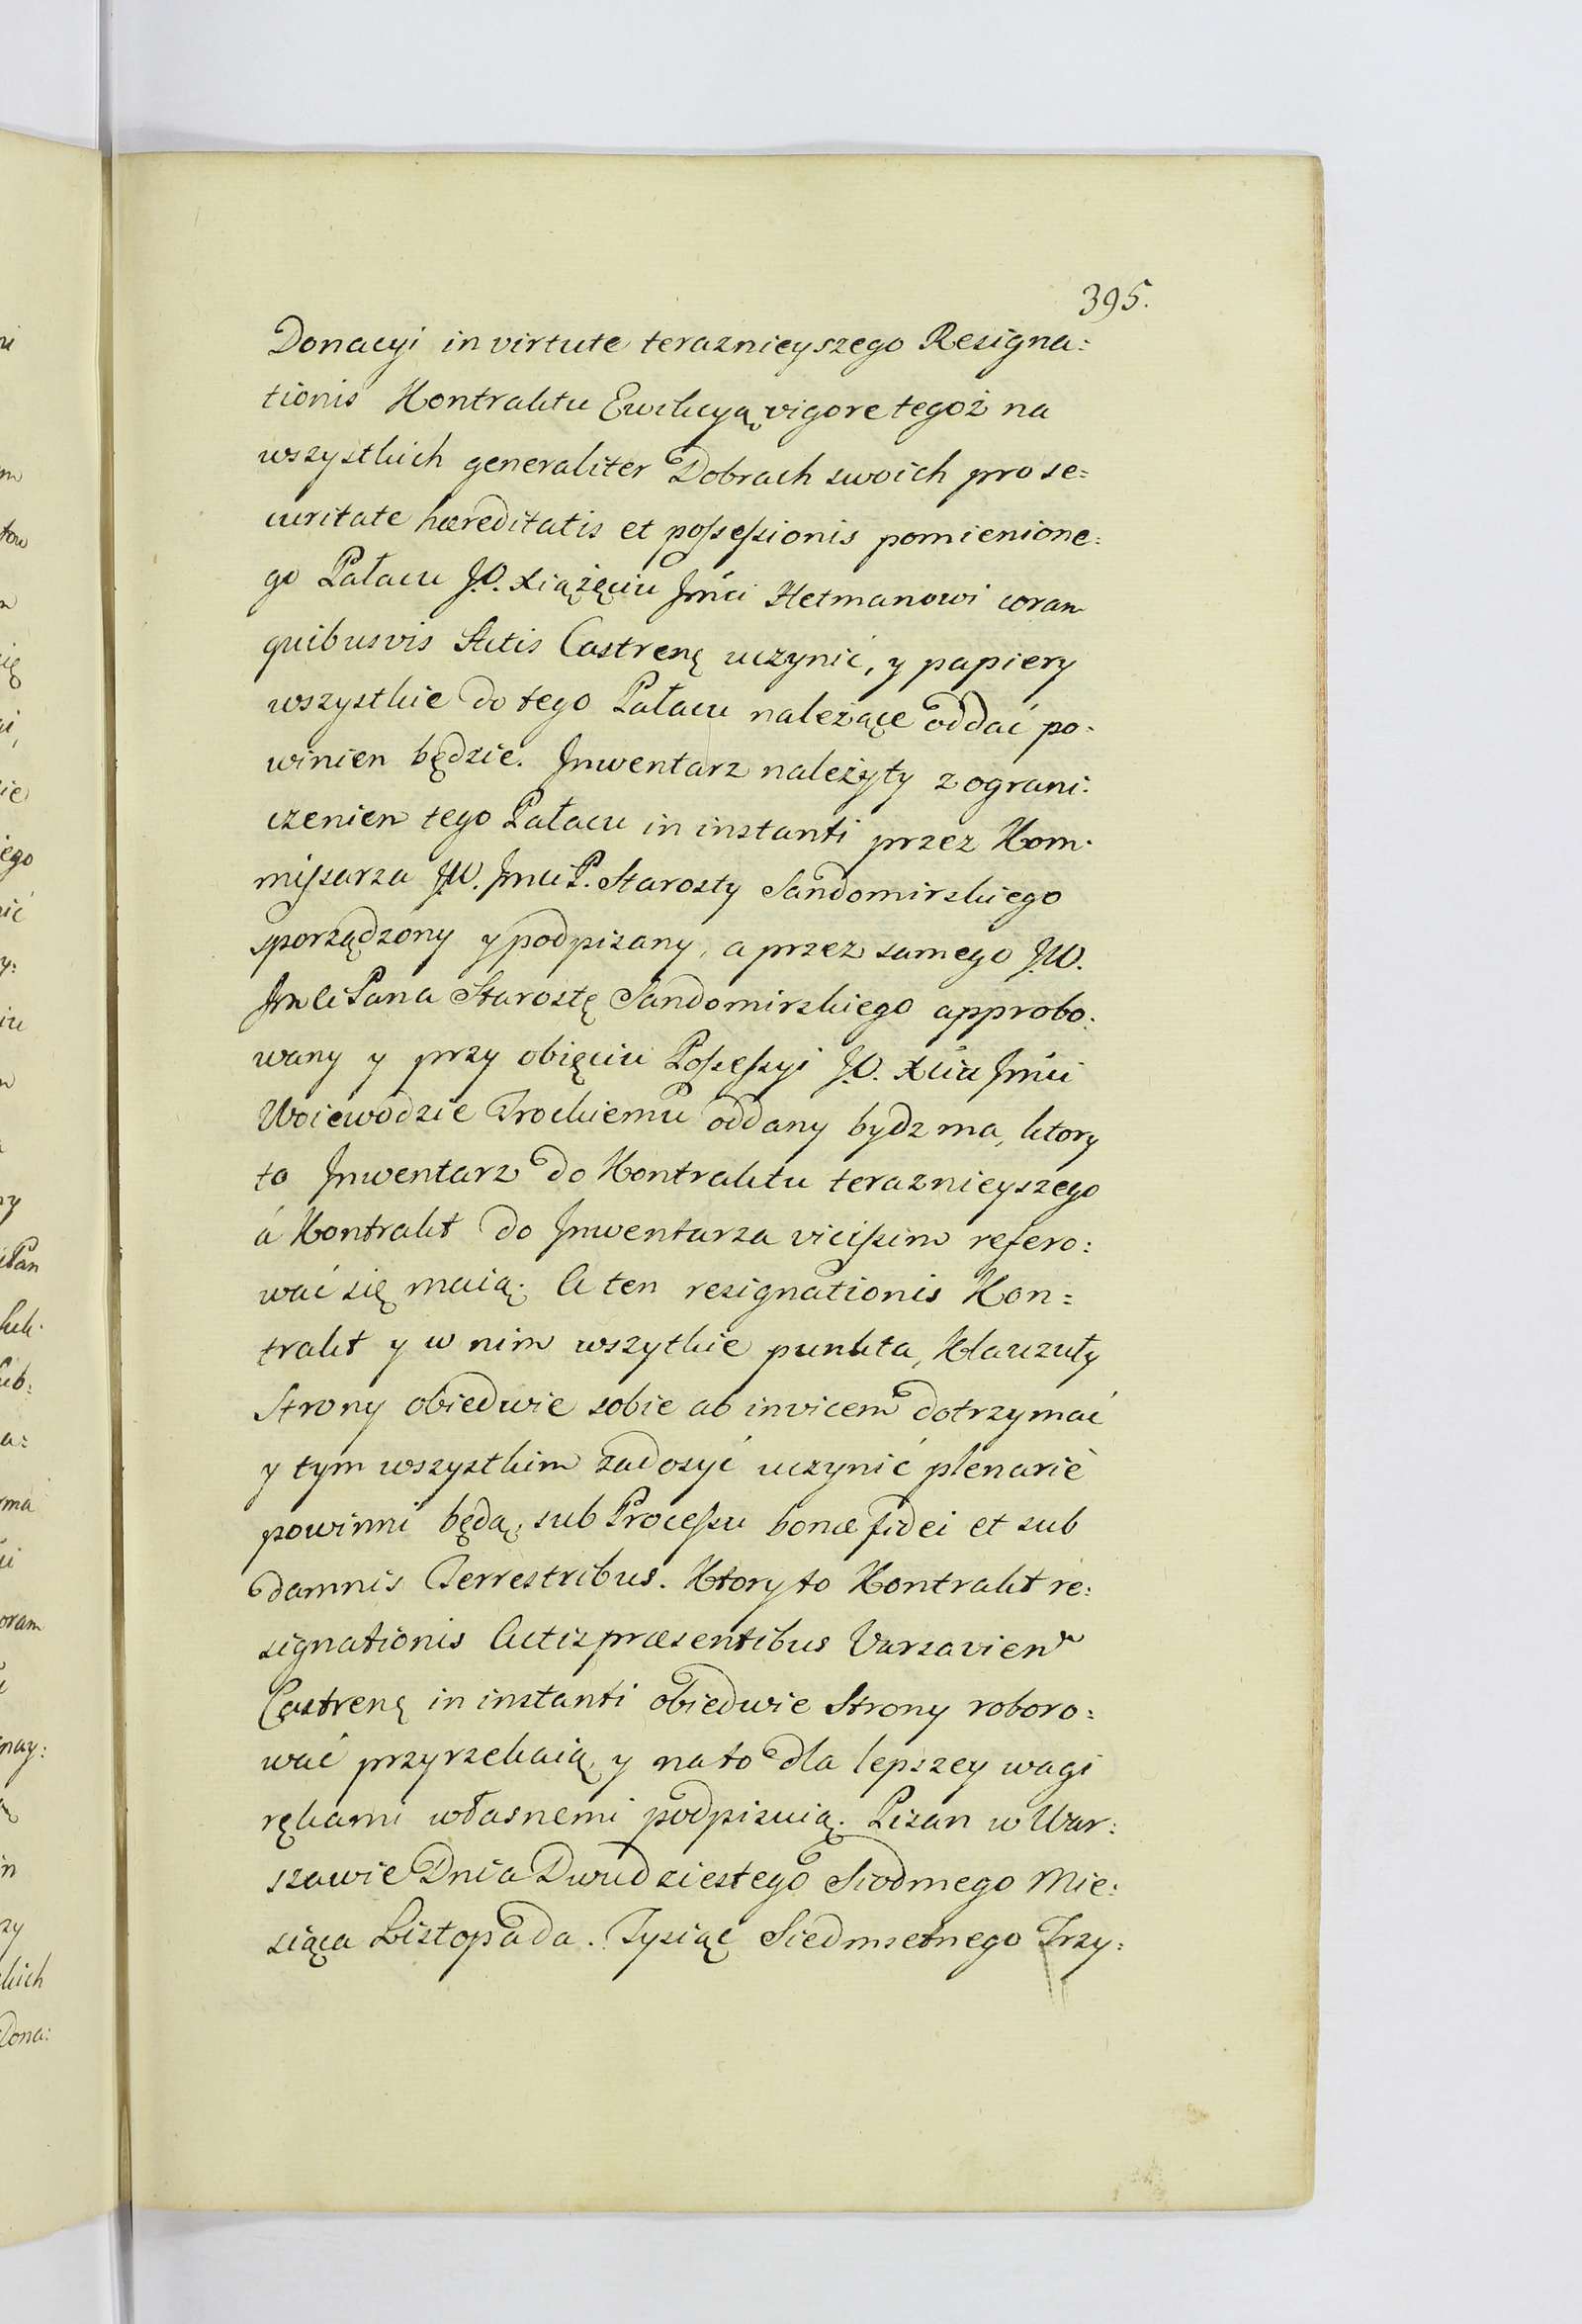 395.
Donacyi in virtute teraznieyszego Resigna:
tionis Kontraktu Ewikcyą vigore tegoż na
wszystkich generaliter Dobrach swoich pro se=
curitate hæreditatis et possessionis pomienione:
go Pałacu J.O. Xiążęciu Jmći Hetmanowi coram
quibusvis Actis Castrenę uczynić, y papiery
wszystkie do tego Pałacu należące oddać po:
winien będzie. Jnwentarz należyty z ograni:
czeniem tego Pałacu in instanti przez Kom:
missarza JW. Jmci P. Starosty Sandomirskiego
sporządzony y podpisany, a przez samego J.W.
Jmci Pana Starostę Sandomirskiego approbo:
wany y przy obięciu Possessyi J.O. Xcia Jmći
Woiewodzie Trockiemu oddany bydz ma, ktory
to Jnwentarz do Kontraktu teraznieyszego
á Kontrakt do Jnwentarza vicissim refero:
wać się maią. A ten resignationis Kon=
trakt y w nim wszytkie punkta, Klauzuły
Strony obiedwie sobie ab invicem dotrzymać
y tym wszystkim zadosyć uczynić plenariè
powinni będą, sub Processu bonæ fidei et sub
damnis Terrestribus. Ktory to Kontrakt re:
signationis Actis præsentibus Varsavien
Castrenę in instanti obiedwie Strony roboro:
wać przyrzekaią, y na to dla lepszey wagi
rękami własnemi podpisuią. Pisan w War:
szawie Dnia Dwudziestego Siodmego Mie:
siąca Listopada. Tysiąc Siedmsetnego Trzy: